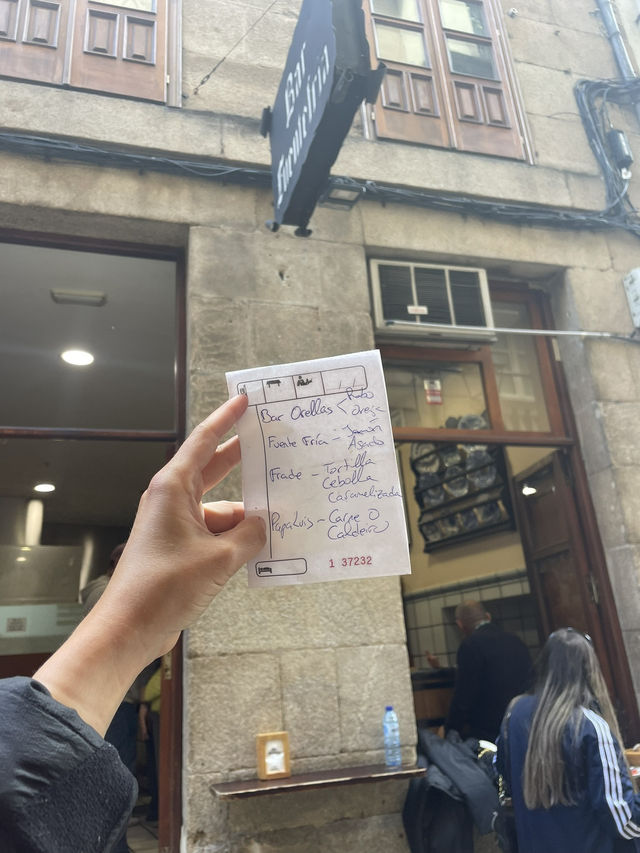 Bar
Fuentefría
Bar Orellas < Rabo
oreja
Fuente Fría - Jamón
Asado
Frade - Tortilla
Cebolla
Caramelizada
PapaLuis - Carne O
Caldeiro
1 37232